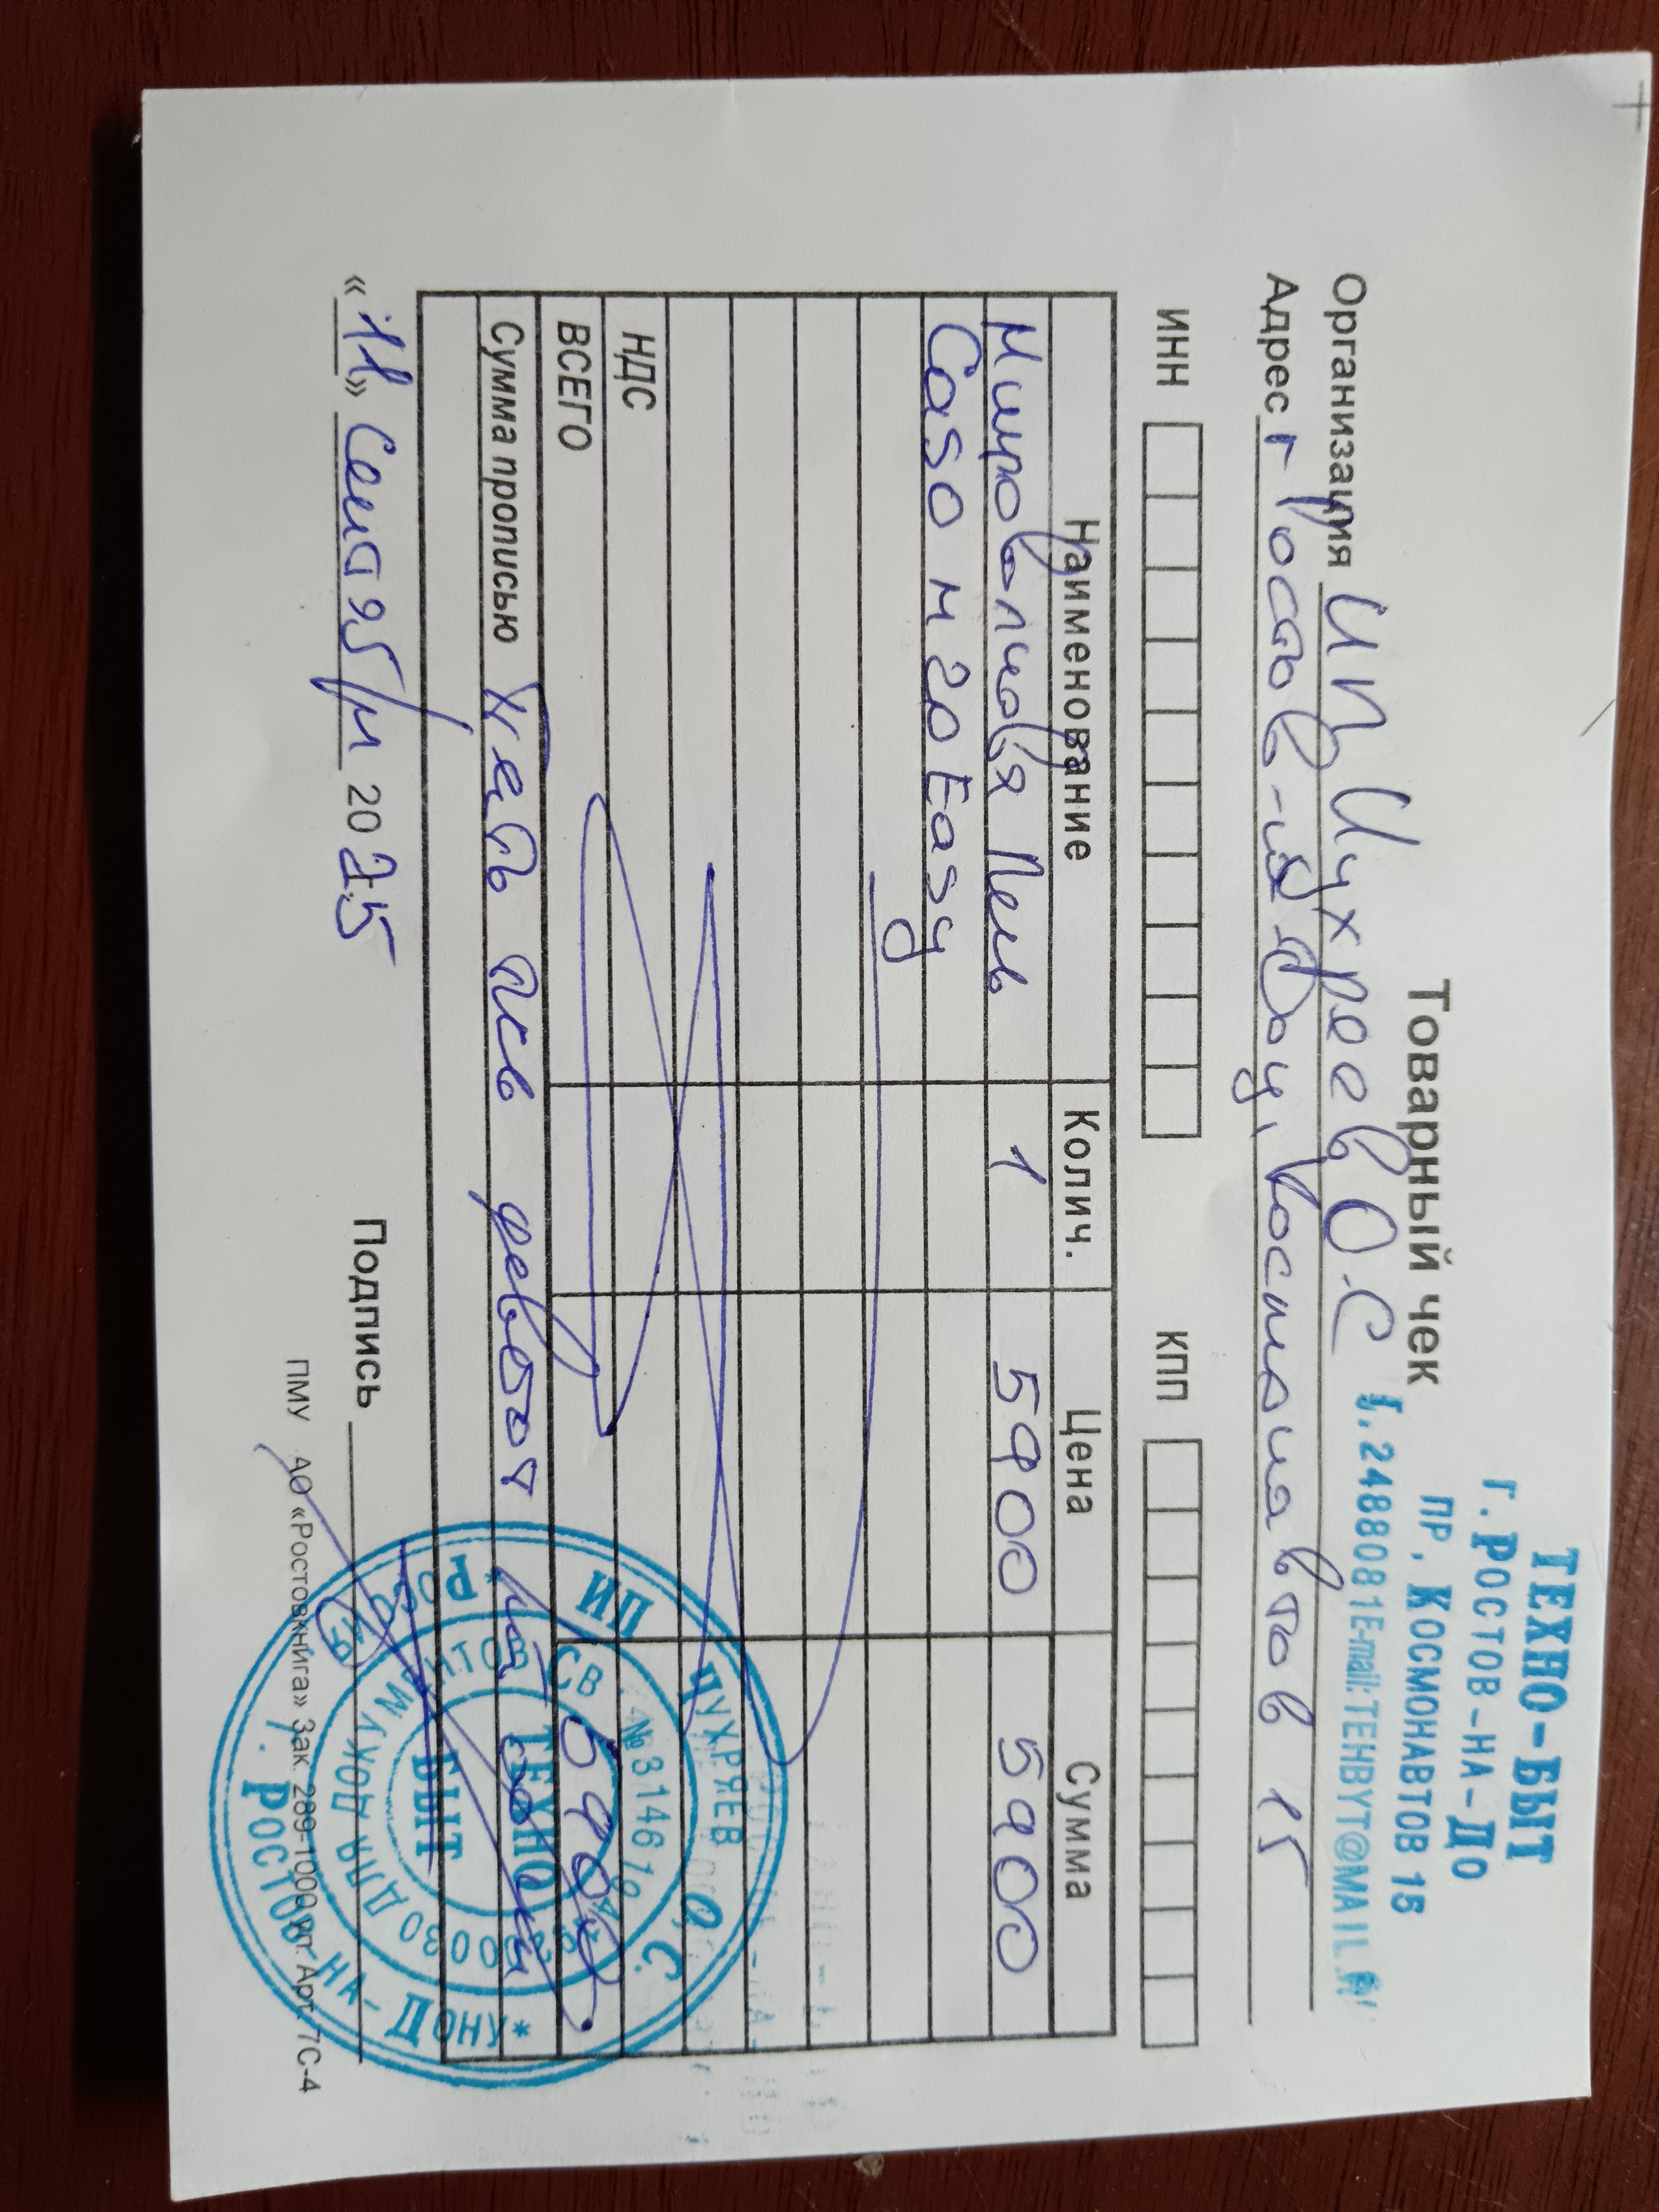 ТЕХНО-БЫТ
г. РОСТОВ-НА-ДО
ПР. КОСМОНАВТОВ 15
т. 2488081 E-mail: TEHBYT@MAIL.R
Товарный чек
Организация ИП Цухреев О.С
Адрес г Ростов-на-Дону, Космонавтов 15
ИНН КПП
Наименование Колич. Цена Сумма
Микроволновая Печь 1 5900 5900
Caso м 20 Easy
НДС
ВСЕГО 5900
Сумма прописью Пять тысяч девятьсот
« 11 » Сентября 2025 Подпись
ПМУ АО «Ростовкнига» Зак. 289-1000 шт. Арт. 7С-4
ИП ЦУХРЯЕВ О.С.
ТЕХНО
БЫТ
ДЛЯ ДОКУМЕНТОВ
Г. РОСТОВ-НА-ДОНУ